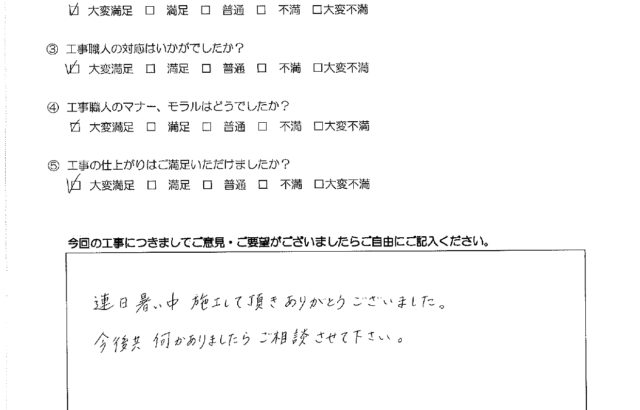 ☑ 大変満足 □ 満足 □ 普通 □ 不満 □大変不満
③ 工事職人の対応はいかがでしたか？
☑ 大変満足 □ 満足 □ 普通 □ 不満 □大変不満
④ 工事職人のマナー、モラルはどうでしたか？
☑ 大変満足 □ 満足 □ 普通 □ 不満 □大変不満
⑤ 工事の仕上がりはご満足いただけましたか？
☑ 大変満足 □ 満足 □ 普通 □ 不満 □大変不満
今回の工事につきましてご意見・ご要望がございましたらご自由にご記入ください。
連日暑い中 施工して頂きありがとうございました。
今後共 何かありましたら ご相談させて下さい。